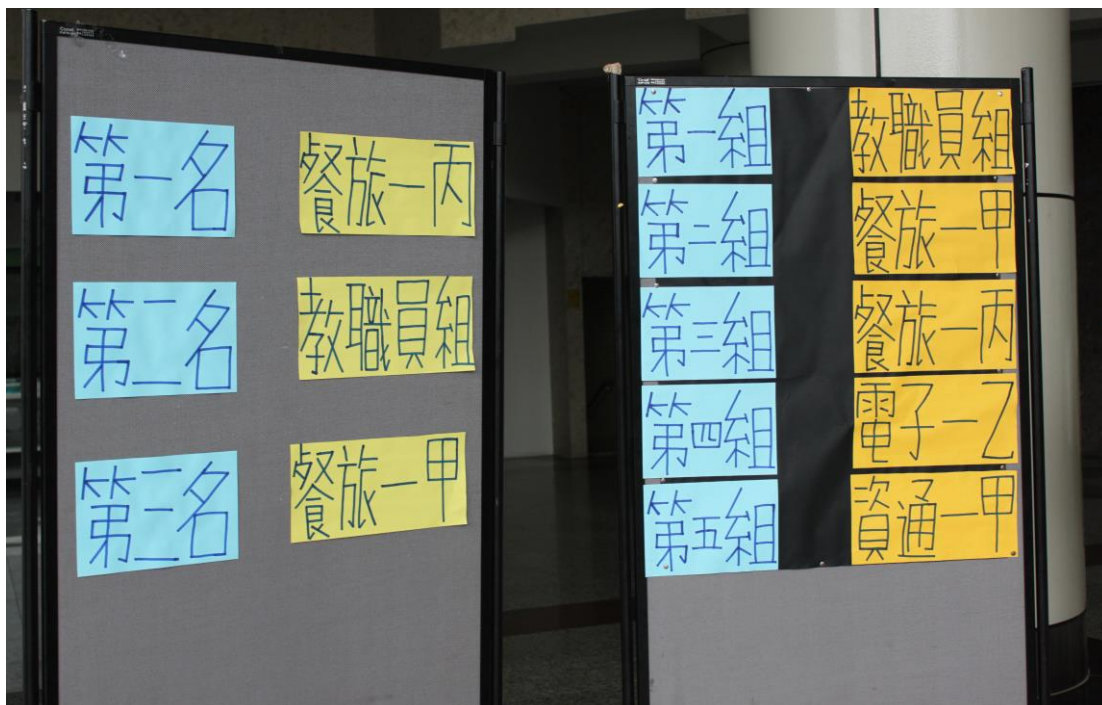 第一名 餐旅一丙
第二名 教職員組
第三名 餐旅一甲
第一組 教職員組
第二組 餐旅一甲
第三組 餐旅一丙
第四組 電子一乙
第五組 資通一甲